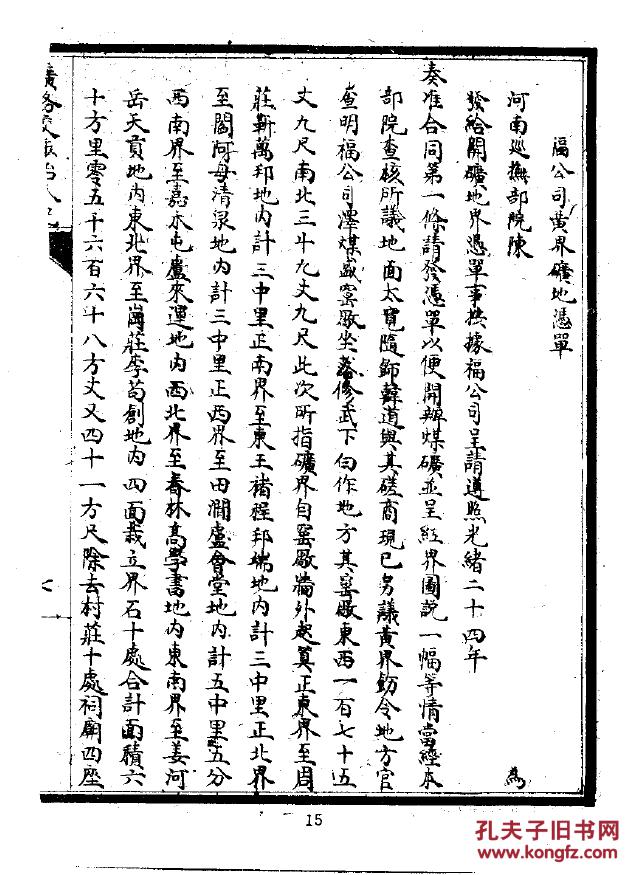 福公司黃界礦地憑單
河南巡撫部院陳 為
發給開礦地界憑單事換據福公司呈請遵照光緒二十四年
奏准合同第一條請發憑單以便開辦煤礦並呈紅界圖說一幅等情當經本
部院查核所議地面太寬隨飭韓道與其磋商現已另議黃界飭令地方官
查明福公司澤煤盛窰廠坐落修武下白作地方其窰廠東西一百七十五
丈九尺南北三十九丈九尺此次所指礦界自窰廠牆外起算正東界至周
莊靳萬邦地內計三中里正南界至東王褚程邦端地內計三中里正北界
至閻河母清泉地內計三中里正西界至田澗盧會堂地內計五中里五分
西南界至嘉木屯盧來運地內西北界至春林高學書地內東南界至姜河
岳天貢地內東北界至崗莊李苟創地內四面栽立界石十處合計面積六
十方里零五千六百六十八方丈又四十一方尺除去村莊十處祠廟四座
15
孔夫子旧书网
www.kongfz.com